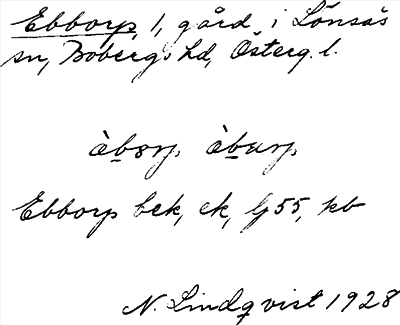 Ebborp, 1, gård i Lönsås
sn, Bobergs hd, Österg. l.
àbørp àbɯrp
Ebborp bek, ek, lj 55, kb
N. Lindqvist 1928